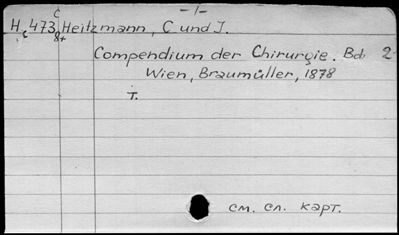 -1-
H 473 Heitzmann, C und J.
Compendium der Chirurgie. Bd. 2
Wien, Braumüller, 1878
T.
см. сл. карт.